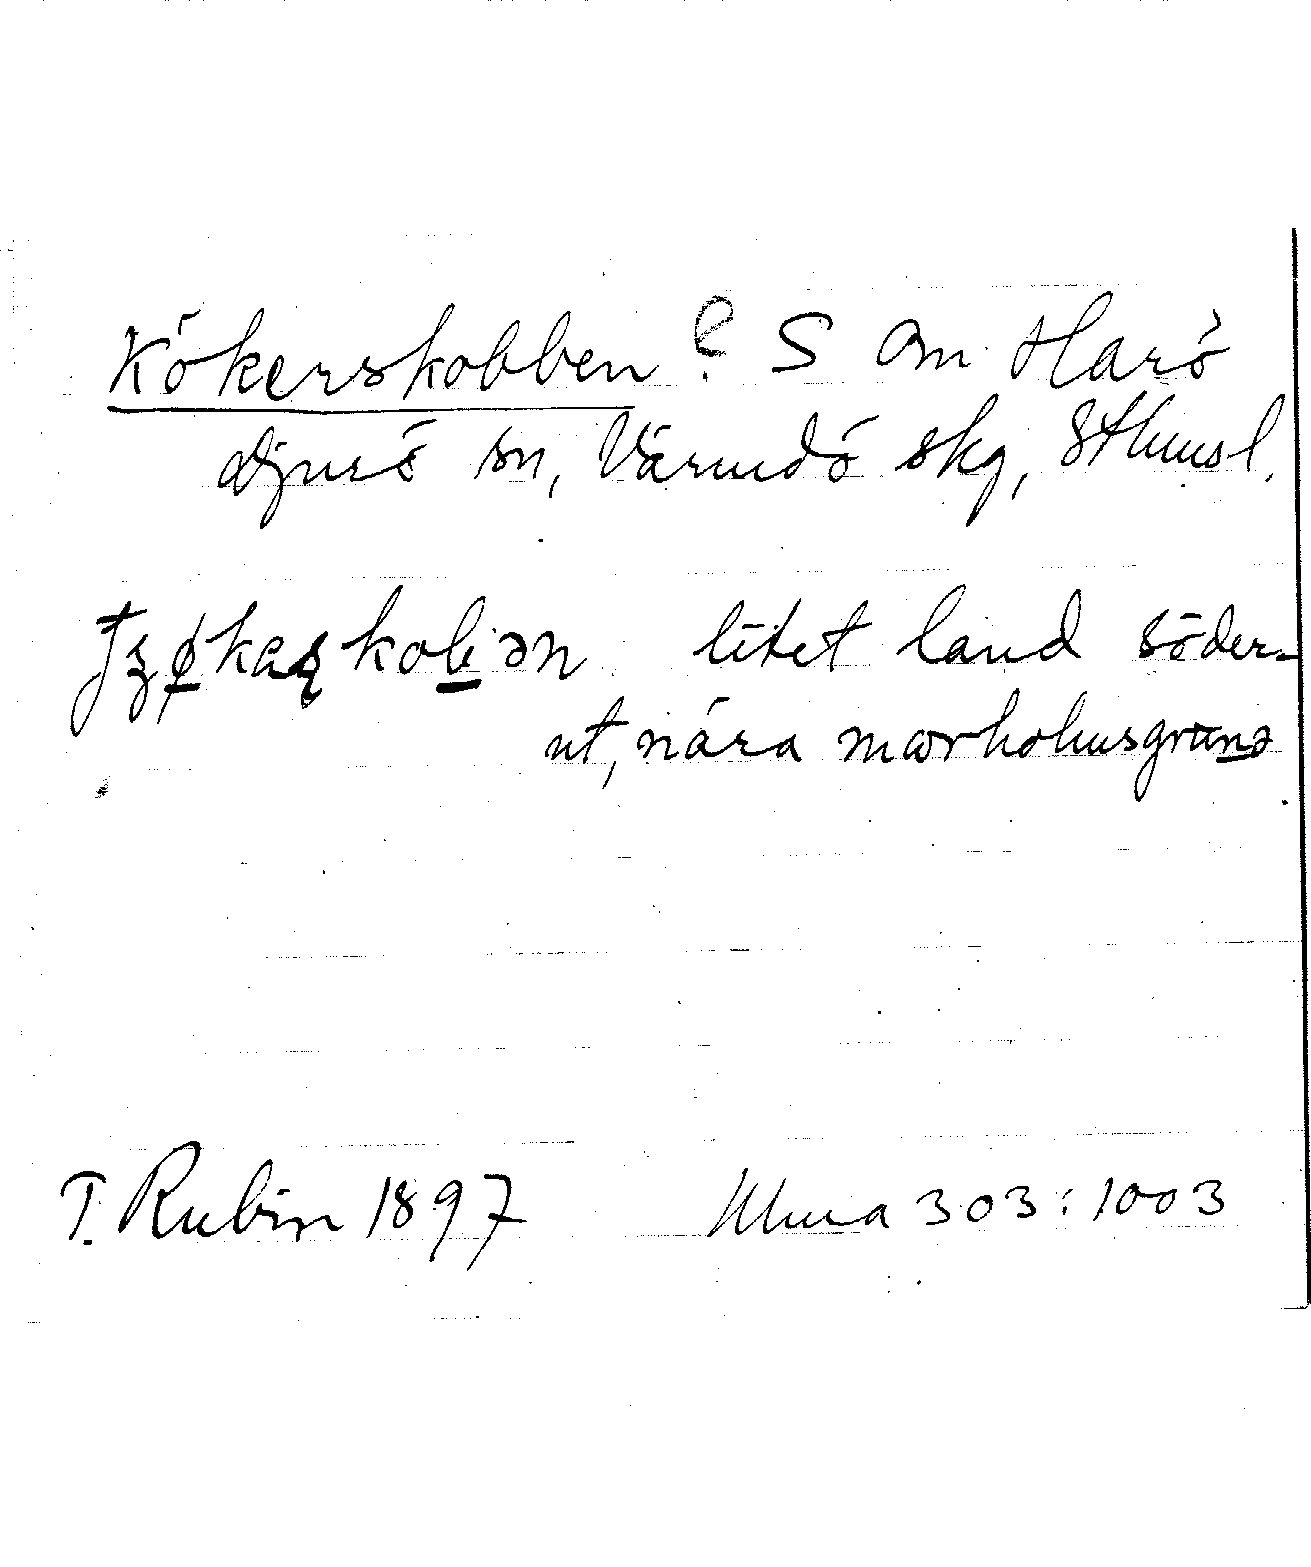 Kökerskobben? S om Harö
Djurö sn, Värmdö skg, Sthmsl.
litet land söder-
ut, nära marhohusgrund
T. Rubin 1897 Ulma 303:1003